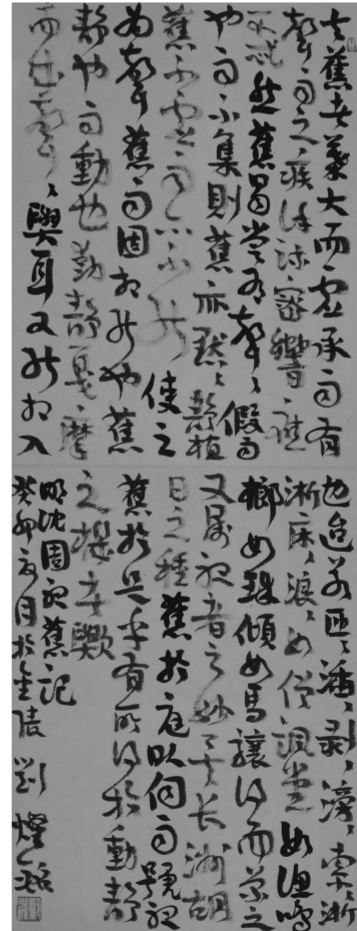 夫蕉者葉大而虛承雨有
聲雨之疾徐疎密響應
不忒然蕉曷嘗有聲聲假雨
也雨不集則蕉亦默默靜植
蕉不虛雨亦不能使之
為聲蕉雨固相能也蕉
靜也雨動也動靜戛摩
而成聲聲與耳又能相入
也迨若匝匝插插剝剝滂滂索索淅
淅床床浪浪如僧諷堂如漁鳴
榔如珠傾如馬驤得而象之
又屬聽者之妙也長洲胡
日之種蕉於庭以伺雨號聽
蕉於是乎有所得於動靜
之機者歟
明沈周聽蕉記
癸卯夏月於金陵 劉燦銘